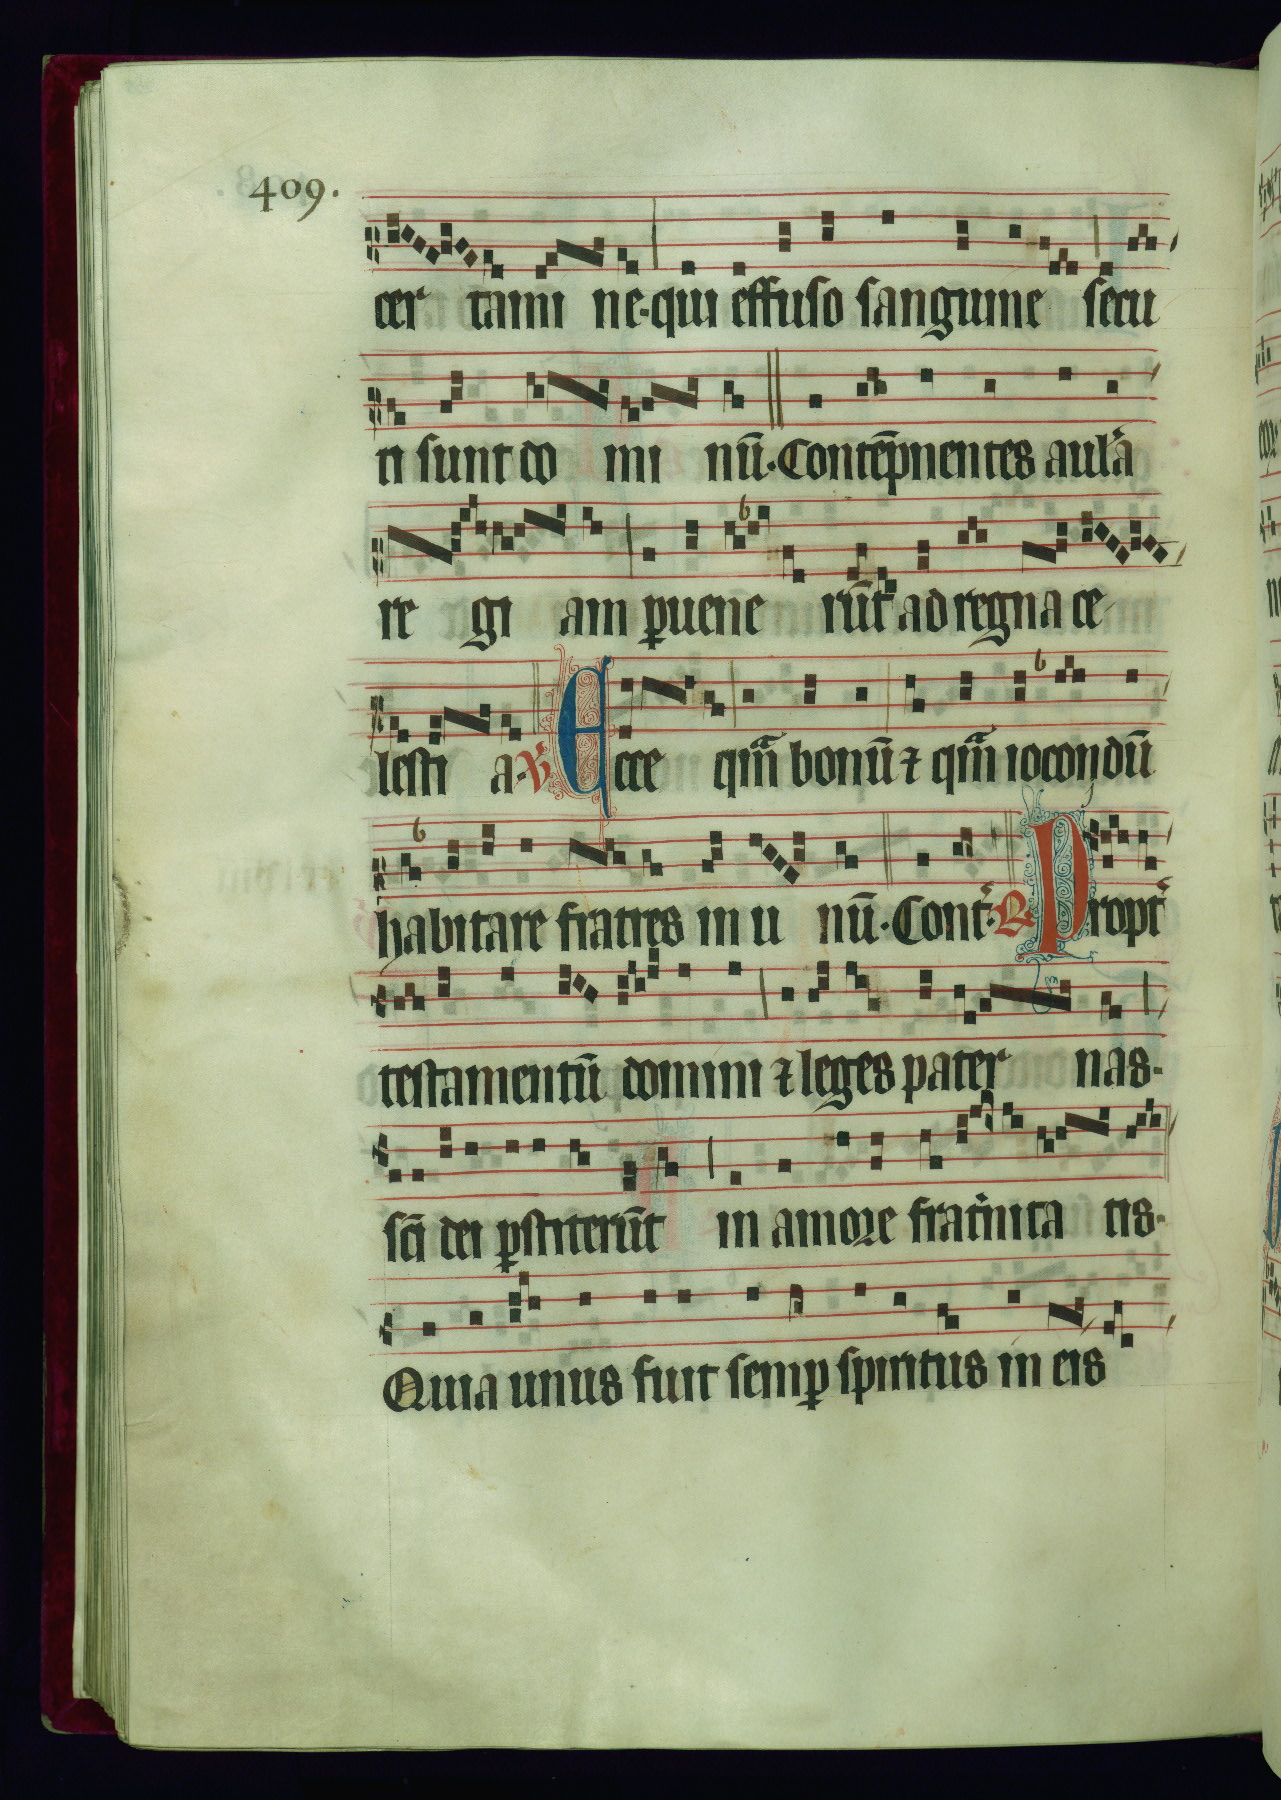 409.
cer tami ne·qui effuso sanguine secu
ti sunt do mi nū·Contēpnentes aulā
re gi am ꝑuene rūt ad regna ce
lesti a·℣ Ecce qm̄ bonū ⁊ qm̄ iocondū
habitare fratres in u nū·Cont̄·℟ Propt̄
testamentū domini ⁊ leges pater nas·
sc̄i dei ꝑstiterūt in amore frat̄nita tis·
Quia unus fuit semꝑ spiritus in eis